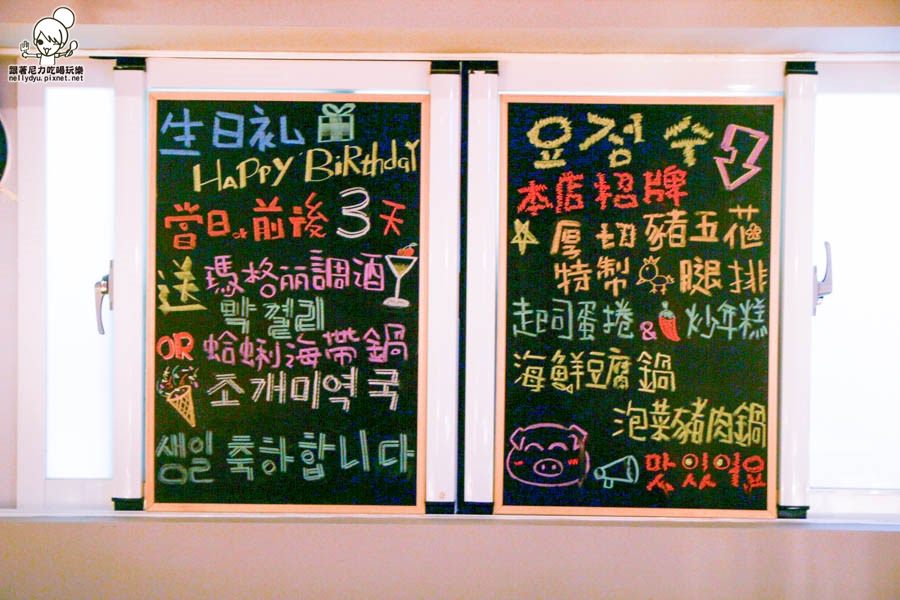 跟著尼力吃喝玩樂
nellydyu.pixnet.net
生日礼
HAPPY BiRthdaY
當日or前後3天
送瑪格麗調酒
막걸리
OR蛤蜊海帶鍋
조개미역국
생일축하합니다
요겸수
本店招牌
厚切豬五花
特製腿排
起司蛋捲&炒年糕
海鮮豆腐鍋
泡菜豬肉鍋
맛있어요